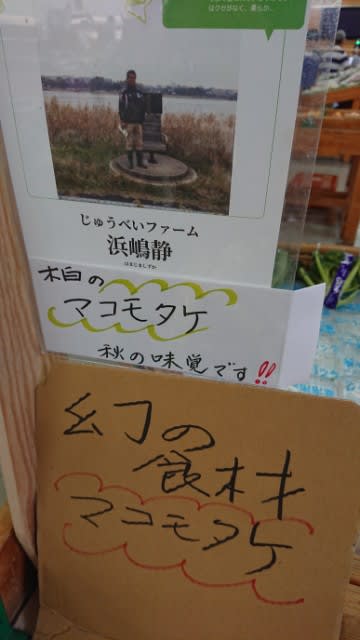 はクセがなく、柔らか…
じゅうべいファーム
浜嶋静
はまじましずか
柏の
マコモタケ
秋の味覚です!!
幻の
食材
マコモタケ